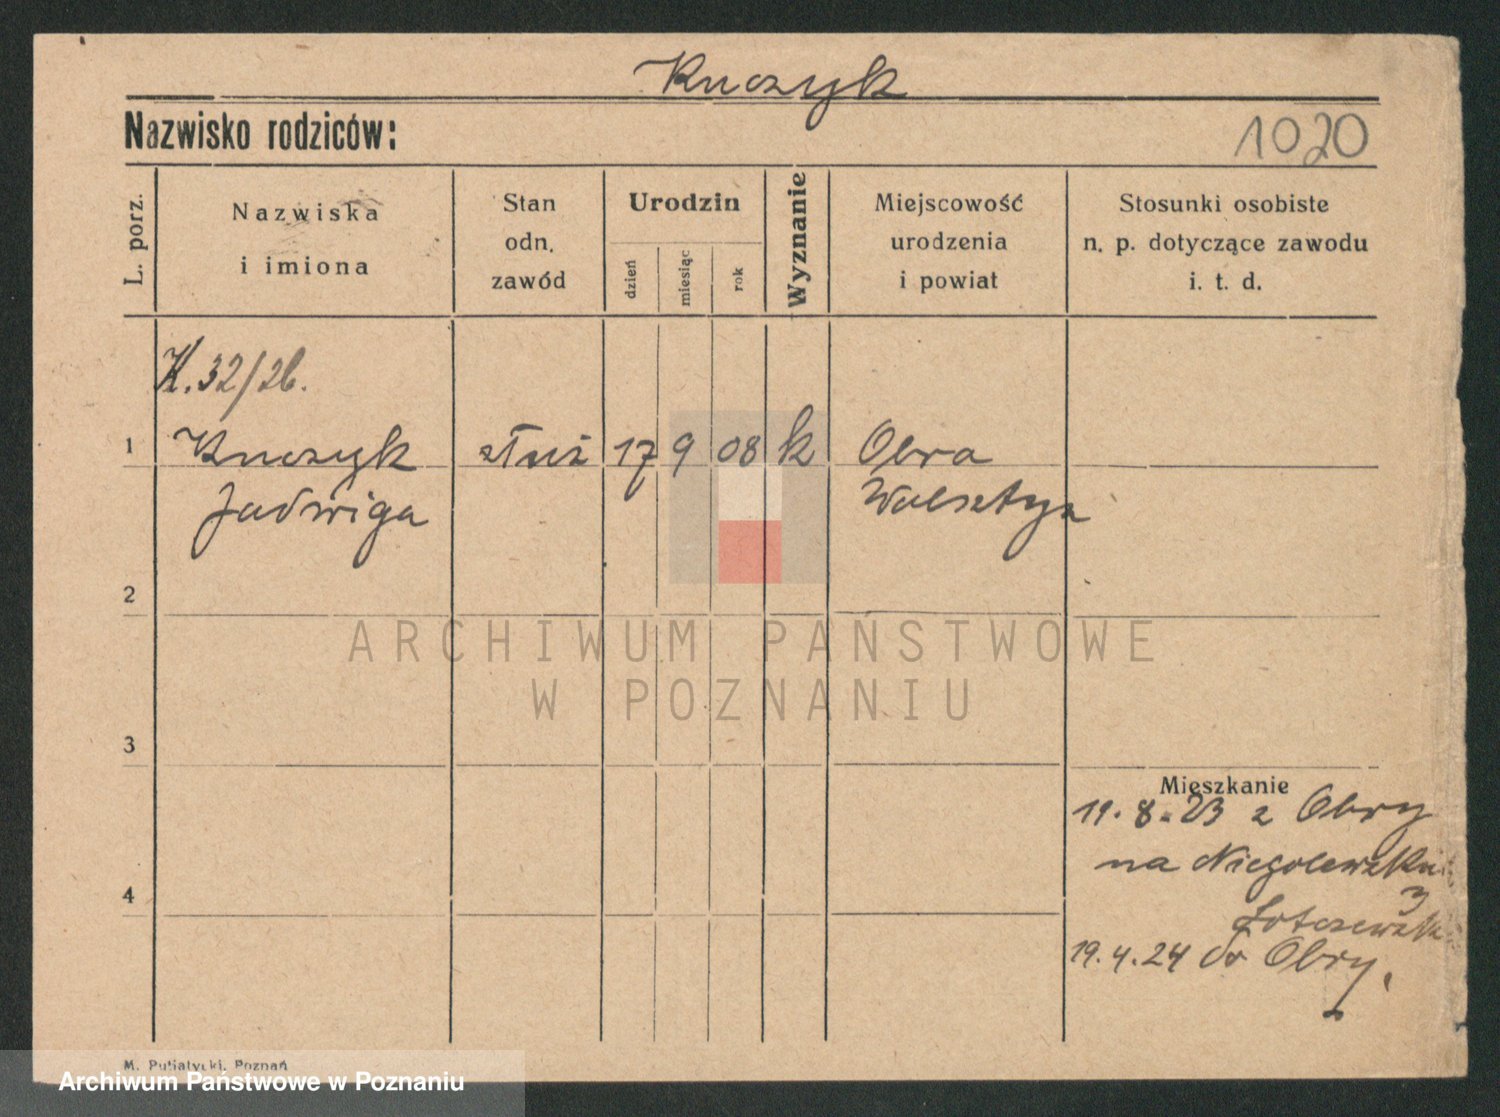 Knoszyk
Nazwisko rodziców:
1020
L. porz.
Nazwiska
i imiona
Stan
odn.
zawód
Urodzin
dzień
miesiąc
rok
Wyznanie
Miejscowość
urodzenia
i powiat
Stosunki osobiste
n. p. dotyczące zawodu
i. t. d.
K. 32/26.
1 Knoszyk służ 17 9 08 k Obra
Jadwiga Wolsztyn
2
ARCHIWUM PAŃSTWOWE
W POZNANIU
3
Mieszkanie
19. 8. 23 z Obry
na
4
19. 4. 24 do Obry.
M. Putiatycki, Poznań
Archiwum Państwowe w Poznaniu